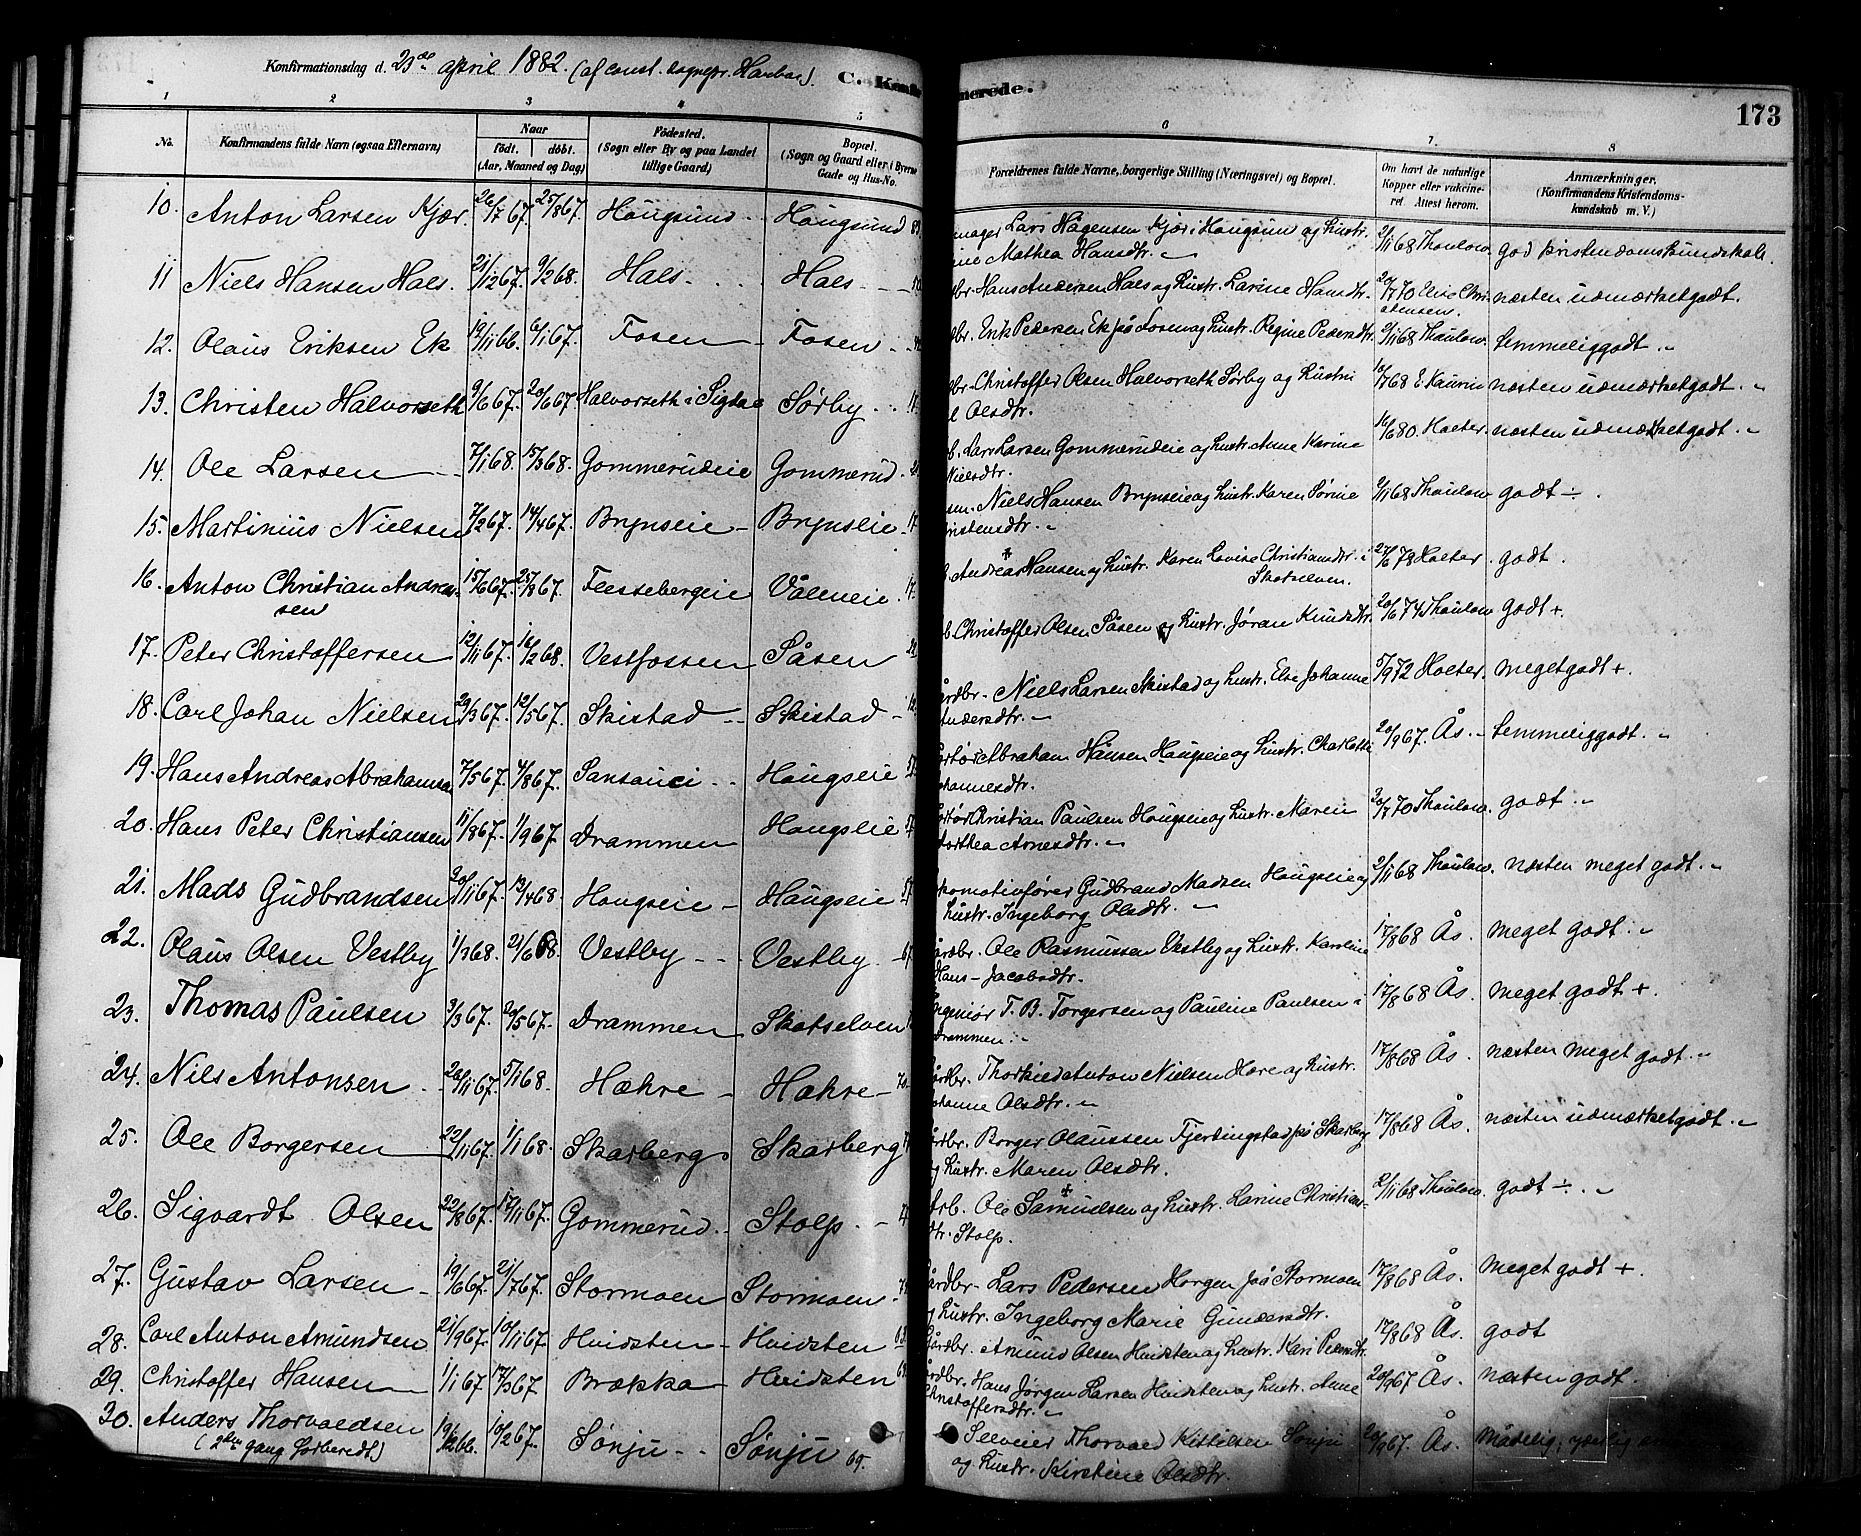 Konfirmationsdag d. 23de april 1882. (af const. sognepr.
C. Konfir
merede.
173
1 2 3 4 5 6 7. 8
No. Konfirmandens fulde Navn (ogsaa Efternavn) Naar født. døbt. (Aar, Maaned og Dag) Fødested. (Sogn eller By og paa Landet tillige Gaard) Bopæl. (Sogn og Gaard eller i Byerne Gade og Hus-No. Forældrenes fulde Navne, borgerlige Stilling (Næringsvei) og Bopæl. Om havt de naturlige Kopper eller vaccineret. Attest herom. Anmærkninger. (Konfirmandens Kristendomskundskab m. V.)
10. Anton Larsen Kjær. 26/7 67. 25/8 67. Hougsund Hougsund Lars Hågensen Kjær i Hougsun og hustr. 2/11 68 Thaulow. god kristendomskundskab.
Mathea Hansdtr.
11 Niels Hansen Hals. 21/12 67. 9/2 68. Hals Hals Hans Andersen Hals og hustr. Larine Hansdtr. 2/7 70 Elise Christensen. næsten udmærket godt.
12. Olaus Eriksen Ek 19/11 66. 6/1 67. Fosen Fosen Erik Pedersen Ek på Fosen og hustr. Regine Pedersdtr. 2/11 68 Thaulow. temmelig godt.
13. Christen Halvorseth 9/6 67. 20/6 67. Halvorseth i Sigdal Sørby Christoffer Olsen Halvorseth Sørby og hustru 10/7 68 E. Kaurin næsten udmærket godt.
Olsdtr.
14. Ole Larsen 7/1 68. 15/3 68. Gommerudeie Gommerud Lars Larsen Gommerudeie og hustr. Anne Karine 16/6 80. Hoeter. næsten udmærket godt.
Nielsdtr.
15. Martinius Nielsen 7/2 67. 14/4 67. Brynseie Brynseie 17. Niels Hansen Brynseie og hustr. Karen Sørine 2/11 68 Thaulow godt ÷.
istensdtr.
16. Anton Christian Andreassen 15/6 67. 25/8 67. Flessebergeie Våleneie 17. Andreas Hansen og hustr. Karen Lovise Christiansdtr. i 27/6 78 Hoeter. godt.
Skotselven.
17. Peter Christoffersen 12/11 67. 16/2 68. Vestfossen Såsen Christoffer Olsen Såsen og hustr. Jøran Knudsdtr. 20/6 74 Thaulow godt +
18. Carl Johan Nielsen 29/3 67. 12/5 67. Skistad Skistad Niels Larsen Skistad og hustr. Else Johanne 5/9 72 Hoeter. meget godt +.
Andersdtr.
19. Hans Andreas Abrahamsen 7/5 67. 4/8 67. Sansouci Hougseie Abraham Hansen Hougseie og hustr. Charlotte 20/9 67. Ås. temmelig godt.
ohannesdtr.
20. Hans Peter Christiansen 11/8 67. 1/9 67. Drammen Hougseie Christian Paulsen Hougseie og hustr. Maren 20/7 70 Thaulow. godt
orthea Arnesdtr.
21. Mads Gudbrandsen 20/11 67. 12/4 68. Hougseie Hougseie 57. okomotivfører Gudbrand Madsen Hougseie og 2/11 68 Thaulow. næsten meget godt.
hustr. Ingeborg Olsdtr.
22. Olaus Olsen Vestby 1/3 68. 21/6 68. Vestby Vestby 67. årdbr. Ole Rasmussen Vestby og hustr. Karoline 17/8 68 Ås. meget godt
Hans-Jacobsdtr.
23. Thomas Paulsen 3/3 67. 20/5 67. Drammen Skotselven ngeniør T. B. Torgersen og Pauline Paulsen i 17/8 68 Ås. meget godt +.
Drammen.
24. Nils Antonsen 26/11 67. 5/1 68. Hæhre Hæhre årdbr. Thorkild Anton Nielsen Hære og hustr. 17/8 68 Ås. næsten meget godt.
ohanne Olsdtr.
25. Ole Borgersen 22/11 67. 1/1 68. Skarberg Skarberg årdbr. Borger Olaussen Fjerdingstad på Skarberg 17/8 68 Ås. næsten udmærket godt.
g hustr. Maren Olsdtr.
26. Sigvardt Olsen 22/8 67. 17/11 67. Gommerud. Stolp. Arb. Ole Samuelsen og hustr. Larine Christians- 2/11 68 Thaulow. godt ÷.
dtr. Stolp.
27. Gustav Larsen 19/6 67. 21/7 67. Stormoen Stormoen årdbr. Lars Pedersen Horgen på Stormoen 17/8 68 Ås. meget godt +.
g hustr. Ingeborg Marie Gundersdtr.
28. Carl Anton Amundsen 21/9 67. 10/11 67. Hvidsten Hvidsten Gårdbr. Amund Olsen Hvidsten og hustr. Kari Pedersdtr. 17/8 68 Ås. godt
29. Christoffer Hansen 1/1 67. 17/3 67. Brækka Hvidsten 68. årdbr. Hans Jørgen Larsen Hvidsten og hustr. Anne 20/9 67 Ås. næsten godt.
Christoffersdtr.
30. Anders Thorvaldsen 19/12 66. 10/2 67. Sønju Sønju 69. Selveier Thorvald Kittilsen Sønju 20/9 67. Ås. Mådelig,
(2den gang forberedt) og hustr. Kirstine Olsdtr.